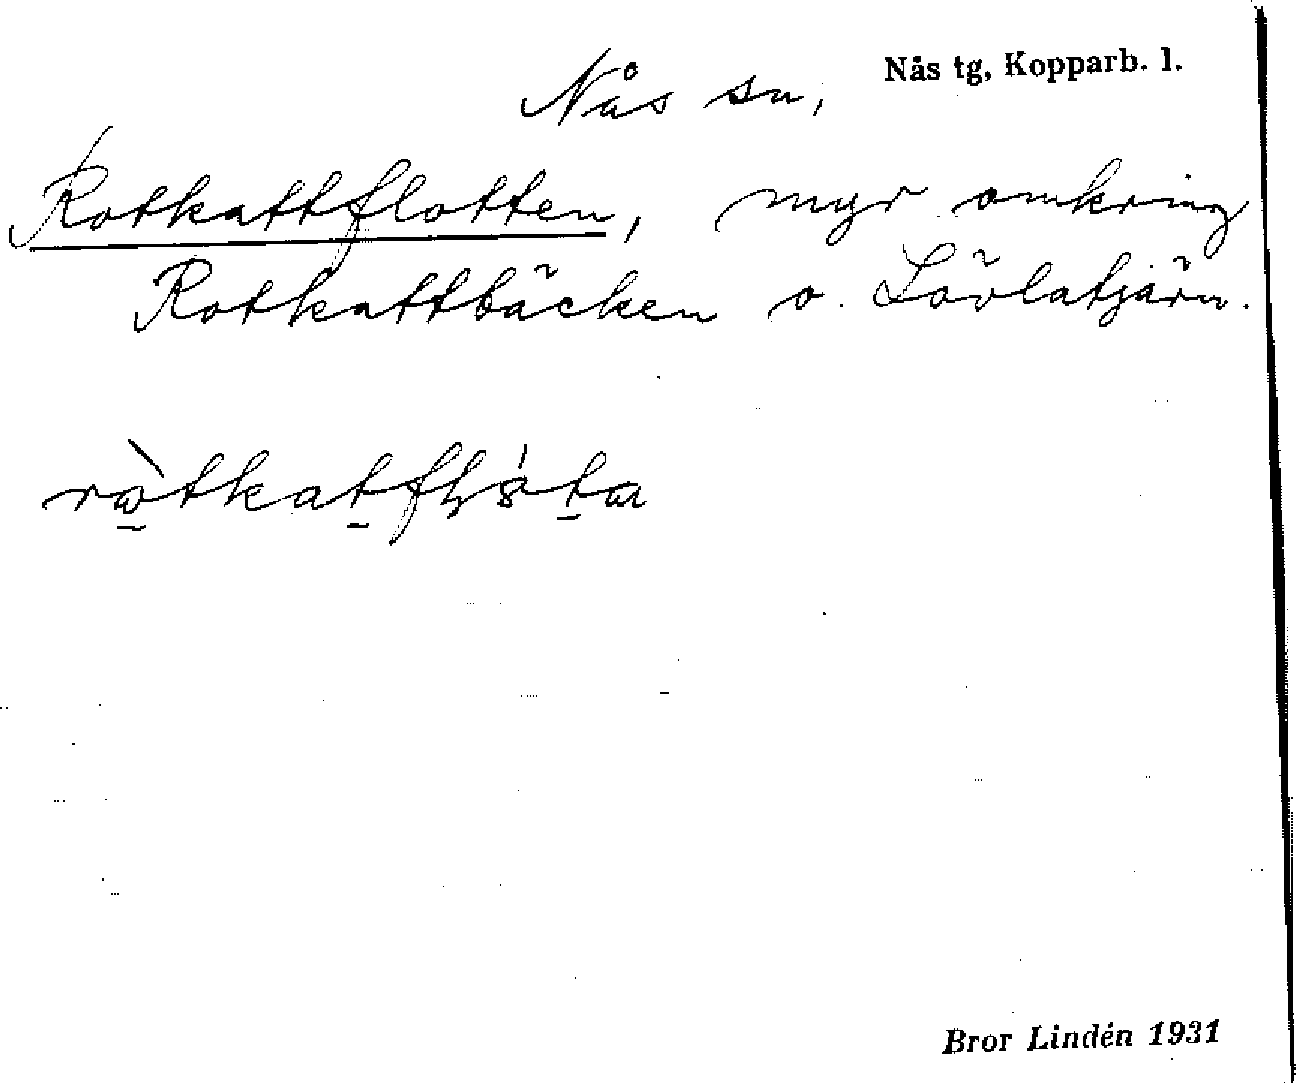 Nås tg, Kopparb. l.
Nås sn,
Rotkattflotten, myr omkring
Rotkattbäcken o. Lövlatjärn.
Bror Lindén 1931